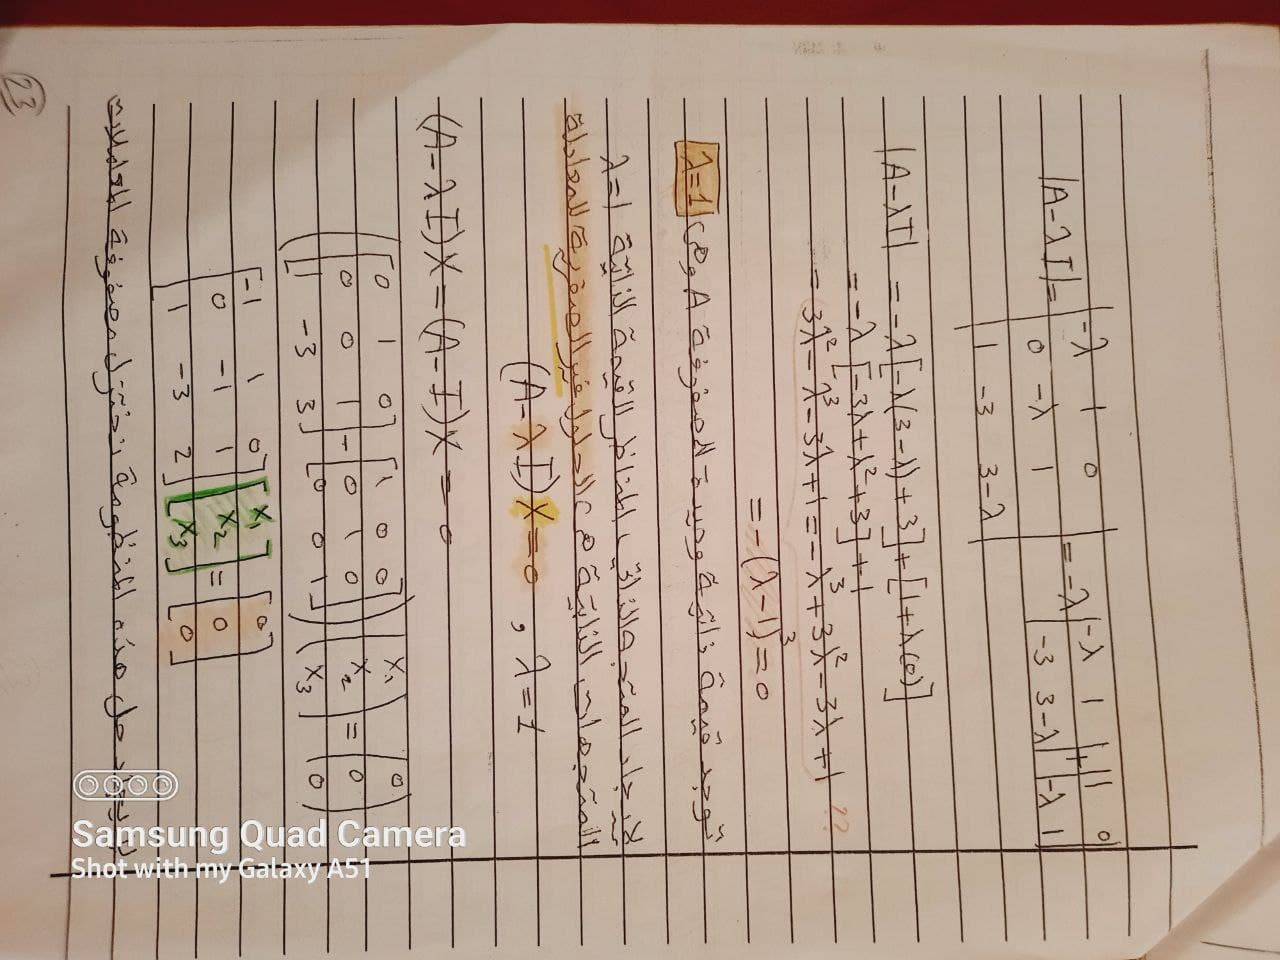 |A-λI| = | -λ 1 0 | = -λ | -λ 1 | + | 1 0 |
| 0 -λ 1 | | -3 3-λ | | -λ 1 |
| 1 -3 3-λ |
|A-λI| = -λ[-λ(3-λ)+3]+[1+λ(0)]
= -λ[-3λ+λ²+3]+1
= 3λ²-λ³-3λ+1 = -λ³+3λ²-3λ+1 ??
= -(λ-1)³ = 0
توجد قيمة ذاتية وحيدة للمصفوفة A وهي λ=1
لإيجاد المتجه الذاتي المناظر للقيمة الذاتية λ=1
المتجهات الذاتية هي الحلول غير الصفرية للمعادلة
(A-λI)X=0 , λ=1
(A-λI)X=(A-I)X=0
([0 1 0] - [1 0 0]) (x₁) = (0)
[0 0 1] [0 1 0] x₂ 0
[1 -3 3] [0 0 1] x₃ 0
[-1 1 0] [x₁] = [0]
0 -1 1 x₂ 0
1 -3 2 x₃ 0
لإيجاد حل هذه المنظومة نختزل مصفوفة المعاملات
23
Samsung Quad Camera
Shot with my Galaxy A51